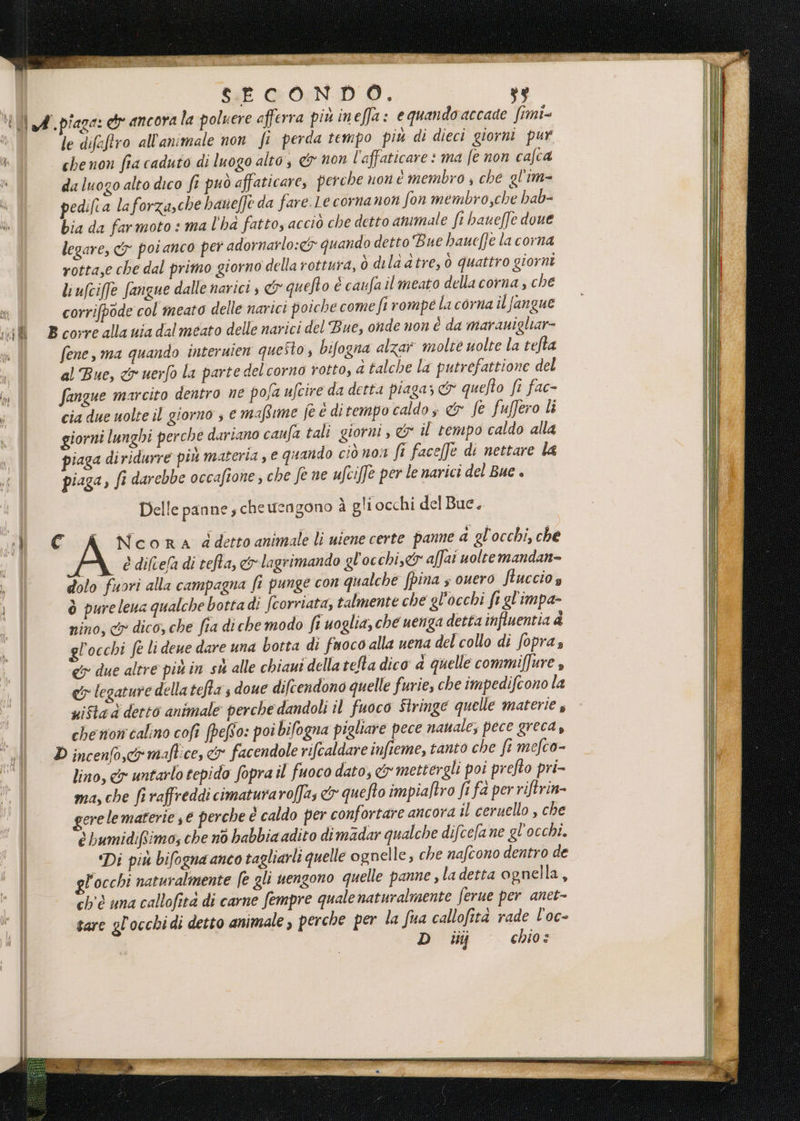 SECONDO.
A piaga: & ancora la poluere afferra più in essa: e quando accade simi-
le disastro all'animale non si perda tempo più di dieci giorni pur
che non sia caduto di luogo alto, & non l'affaticare: ma se non casca
da luogo alto dico si può affaticare, perche non è membro, che gl'im=
pedisca la forza, che hauesse da fare. Le corna non son membro, che hab-
bia da far moto: ma l'hà fatto, acciò che detto animale si hauesse doue
legare, & poi anco per adornarlo: & quando detto Bue hauesse la corna
rotta, e che dal primo giorno della rottura, ò di là à tre, ò quattro giorni
li uscisse sangue dalle narici, & questo è causa il meato della corna, che
corrispõde col meato delle narici poiche come si rompe la corna il sangue
B corre alla uia dal meato delle narici del Bue, onde non è da marauigliar-
sene, ma quando interuien questo, bisogna alzar molte uolte la testa
al Bue, & uerso la parte del corno rotto, à talche la putrefattione del
sangue marcito dentro ne possa uscire da detta piaga; & questo si fac-
cia due uolte il giorno, e massime se è di tempo caldo, & se fussero li
giorni lunghi perche dariano causa tali giorni, & il tempo caldo alla
piaga di ridurre più materia, e quando ciò non si facesse di nettare la
piaga, si darebbe occasione, che se ne uscisse per le narici del Bue.
Delle panne, che uengono à gli occhi del Bue.
C ANcora à detto animale li uiene certe panne à gl'occhi, che
è discesa di testa, & lagrimando gl'occhi, & assai uolte mandan=
dolo fuori alla campagna si punge con qualche spina, ouero stuccio,
ò pure leua qualche botta di scorriata, talmente che gl'occhi si gl'impa-
nino, & dico, che sia di che modo si uoglia, che uenga detta influentia à
gl'occhi se li deue dare una botta di fuoco alla uena del collo di sopra,
& due altre più in sù alle chiaui della testa dico à quelle commissure,
& legature della testa, doue discendono quelle furie, che impediscono la
uista à detto animale perche dandoli il fuoco stringe quelle materie,
che non calino cosi spesso: poi bisogna pigliare pece nauale, pece greca,
D incenso, & mastice, & facendole riscaldare insieme, tanto che si mesco-
lino, & untarlo tepido sopra il fuoco dato, & mettergli poi presto pri-
ma, che si raffreddi cimatura rossa, & questo impiastro si fà per ristrin=
gere le materie, e perche è caldo per confortare ancora il ceruello, che
è humidissimo, che nõ habbia adito di mãdar qualche discesa ne gl'occhi.
Di più bisogna anco tagliarli quelle ognelle, che nascono dentro de
gl'occhi naturalmente se gli uengono quelle panne, la detta ognella,
ch'è una callosità di carne sempre quale naturalmente serue per anet-
tare gl'occhi di detto animale, perche per la sua callosità rade l'oc-
D iiij chio: